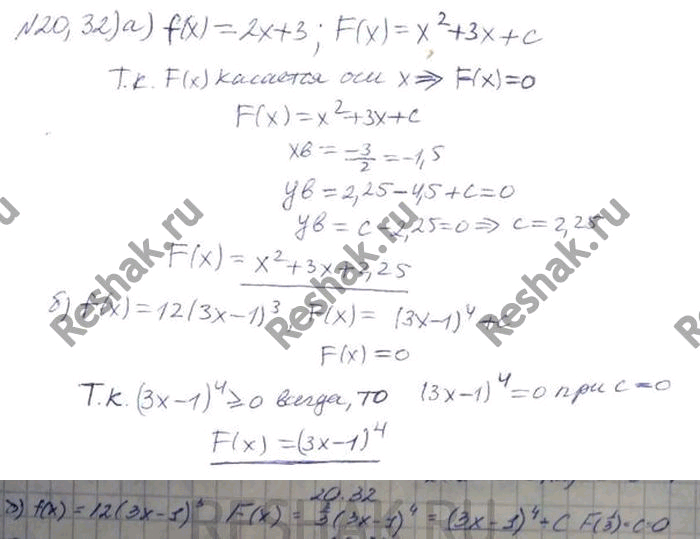 №20,32)а) f(x)=2x+3; F(x)=x²+3x+c
Т.к. F(x) касается оси x ⇒ F(x)=0
F(x)=x²+3x+c
xв = -3/2 = -1,5
yв = 2,25-4,5+c=0
yв = c-2,25=0 ⇒ c=2,25
F(x) = x²+3x+2,25
б) f(x)=12(3x-1)³, F(x)= (3x-1)⁴+c
F(x)=0
Т.к. (3x-1)⁴≥0 всегда, то (3x-1)⁴=0 при c=0
F(x)=(3x-1)⁴
20.32
f(x)=12(3x-1)³ F(x)= (3x-1)⁴ = (3x-1)⁴+C F(1/3)=c=0
Reshak.ru
Reshak.ru
Reshak.ru
RESHAK.RU